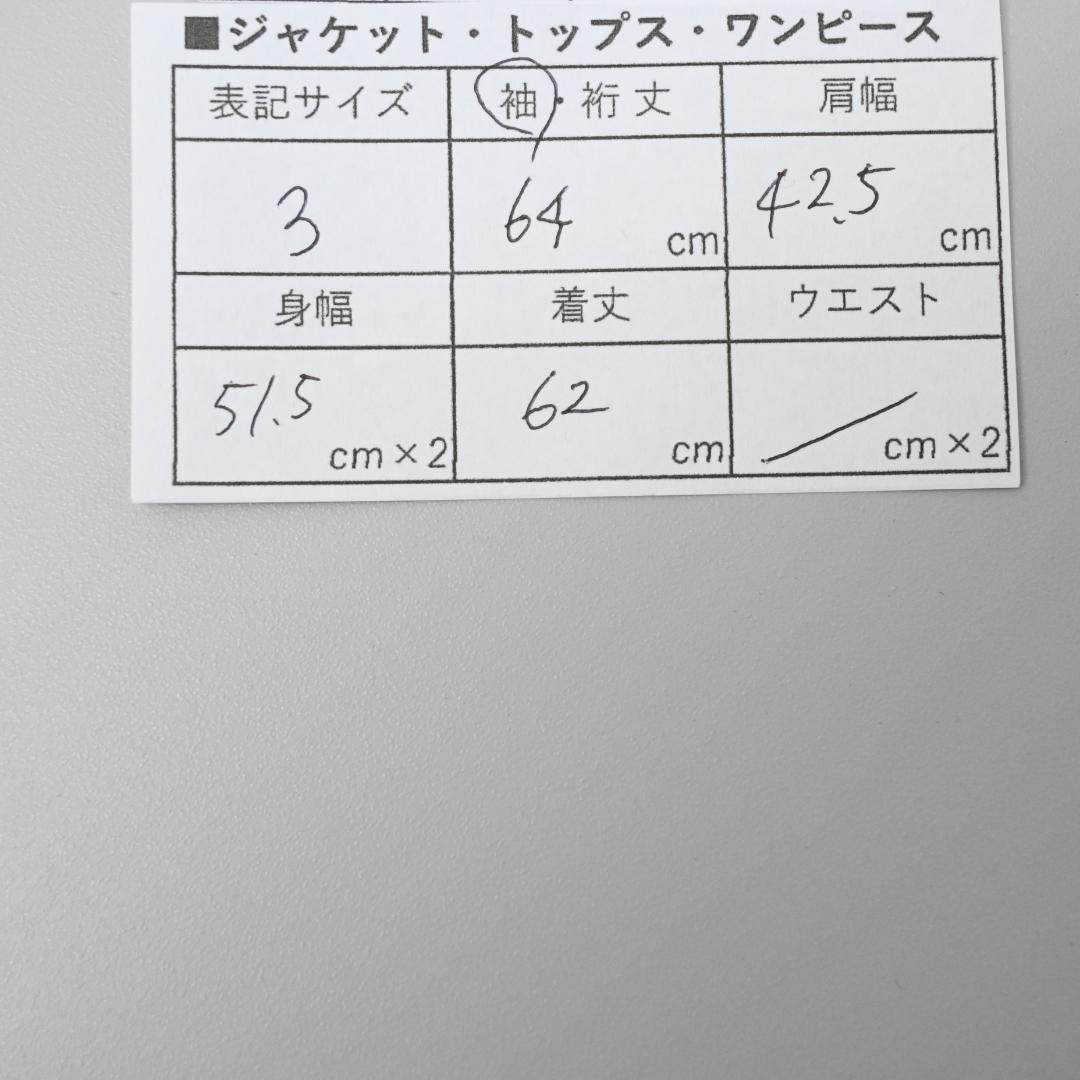 ■ジャケット・トップス・ワンピース
表記サイズ 袖・裄丈 肩幅
3 64 cm 42.5 cm
身幅 着丈 ウエスト
51.5 cm×2 62 cm cm×2